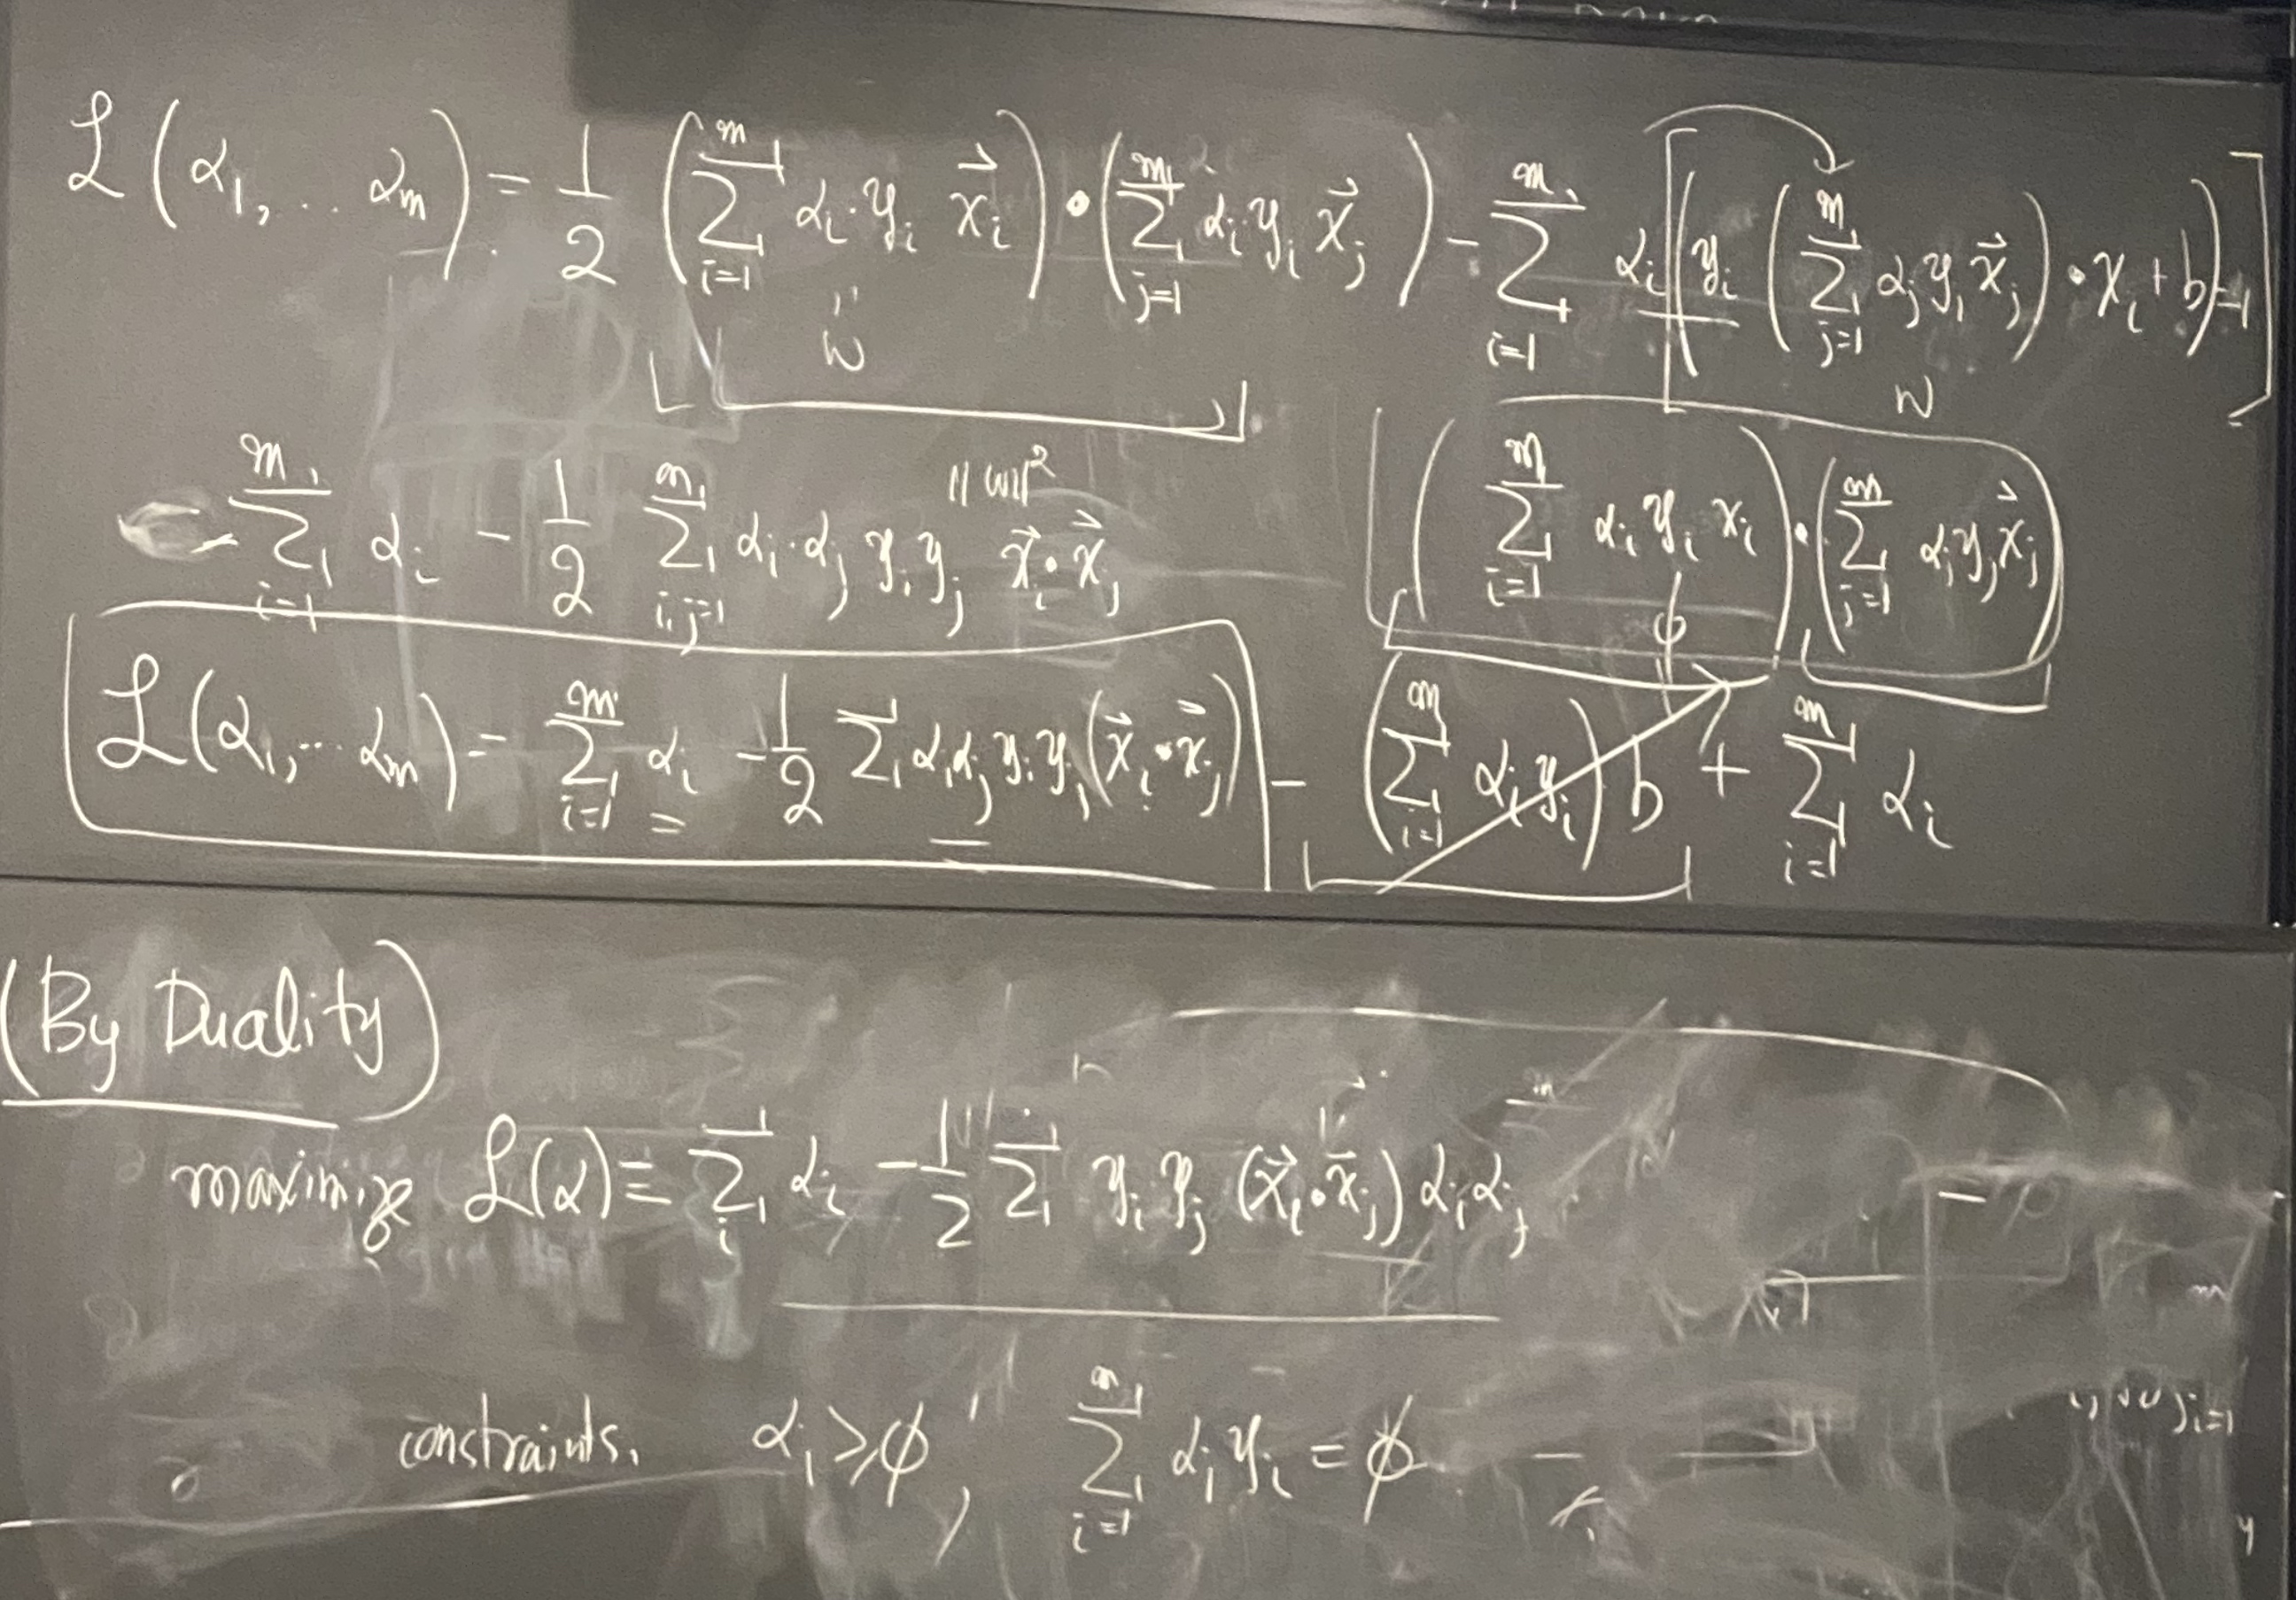 ℒ(α₁, .. αₘ) = 1/2 (∑_{i=1}^{m} αᵢ yᵢ x⃗ᵢ) • (∑_{j=1}^{m} αᵢ yᵢ x⃗ⱼ) - ∑_{i=1}^{m} αᵢ [(yᵢ (∑_{j=1}^{m} αⱼ yⱼ x⃗ⱼ) • xᵢ + b) - 1]
" w w
∑_{i=1}^{m} αᵢ - 1/2 ∑_{i,j=1}^{m} αᵢ·αⱼ yᵢ yⱼ x⃗ᵢ • x⃗ⱼ ||w||² (∑_{i=1}^{m} αᵢ yᵢ xᵢ) • (∑_{j=1}^{m} αⱼ yⱼ x⃗ⱼ)
ϕ
ℒ(α₁, ... αₘ) = ∑_{i=1}^{m} αᵢ - 1/2 ∑ αᵢ αⱼ yᵢ yⱼ (x⃗ᵢ • x⃗ⱼ) - (∑_{i=1}^{m} αᵢ yᵢ) b + ∑_{i=1}^{m} αᵢ
(By Duality)
maximize ℒ(α) = ∑_{i} αᵢ - 1/2 ∑ yᵢ yⱼ (x⃗ᵢ • x⃗ⱼ) αᵢ αⱼ
constraints. αᵢ ≥ ϕ, ∑_{i=1}^{m} αᵢ yᵢ = ϕ